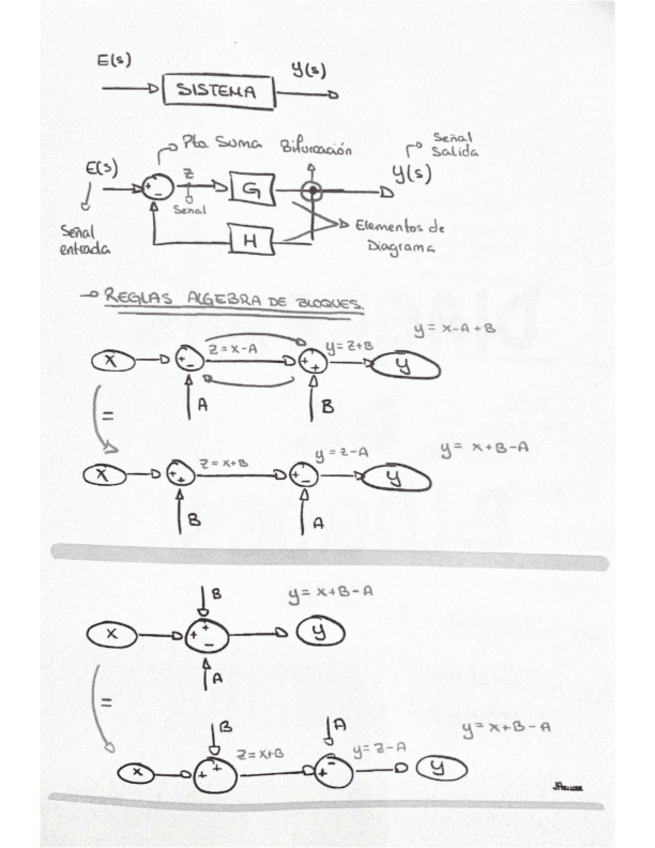 E(s) Y(s)
SISTEMA
Pto. Suma Bifurcación Señal
Salida
E(s) + - Z G Y(s)
Señal
Señal
entrada
H
Elementos de
Diagrama
REGLAS ALGEBRA DE BLOQUES.
y = x-A+B
x + - z = x-A + + y = z+B y
A B
=
x + + z = x+B + - y = z-A y y = x+B-A
B A
B y = x+B-A
x + + - y
A
=
B A y = x+B-A
x + + z = x+B + - y = z-A y